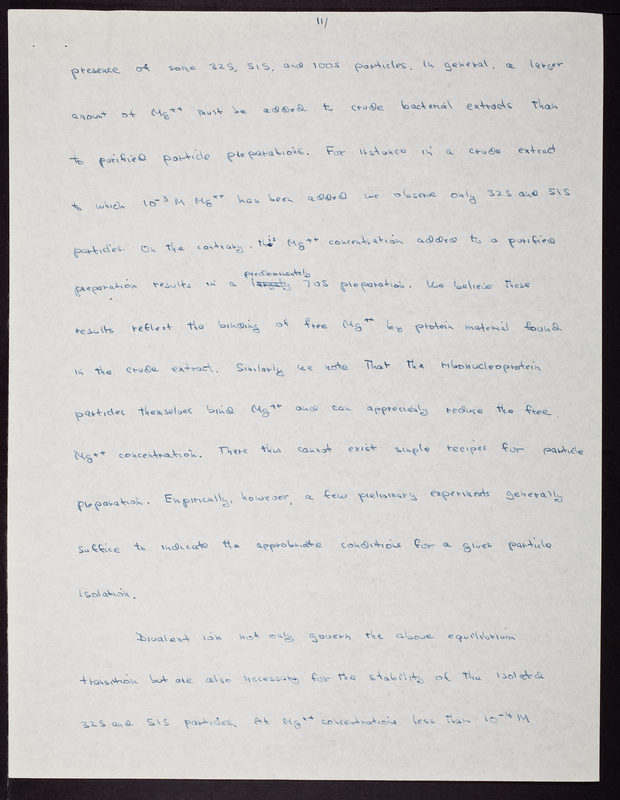 11/
presence of some 32S, 51S, and 100S particles. In general, a larger
amount of Mg++ must be added to crude bacterial extracts than
to purified particle preparations. For instance in a crude extract
to which 10-3 M Mg++ has been added we observe only 32S and 51S
particles. On the contrary, this Mg++ concentration added to a purified
predominately
preparation results in a largely 70S preparation. We believe these
results reflect the binding of free Mg++ by protein material found
in the crude extract. Similarly we note that the ribonucleoprotein
particles themselves bind Mg++ and can appreciably reduce the free
Mg++ concentration. There thus cannot exist simple recipes for particle
preparation. Empirically, however, a few preliminary experiments generally
suffice to indicate the appropriate conditions for a given particle
isolation.
Divalent ion not only govern the above equilibrium
transition but are also necessary for the stability of the isolated
32S and 51S particles. At Mg++ concentrations less than 10-4 M